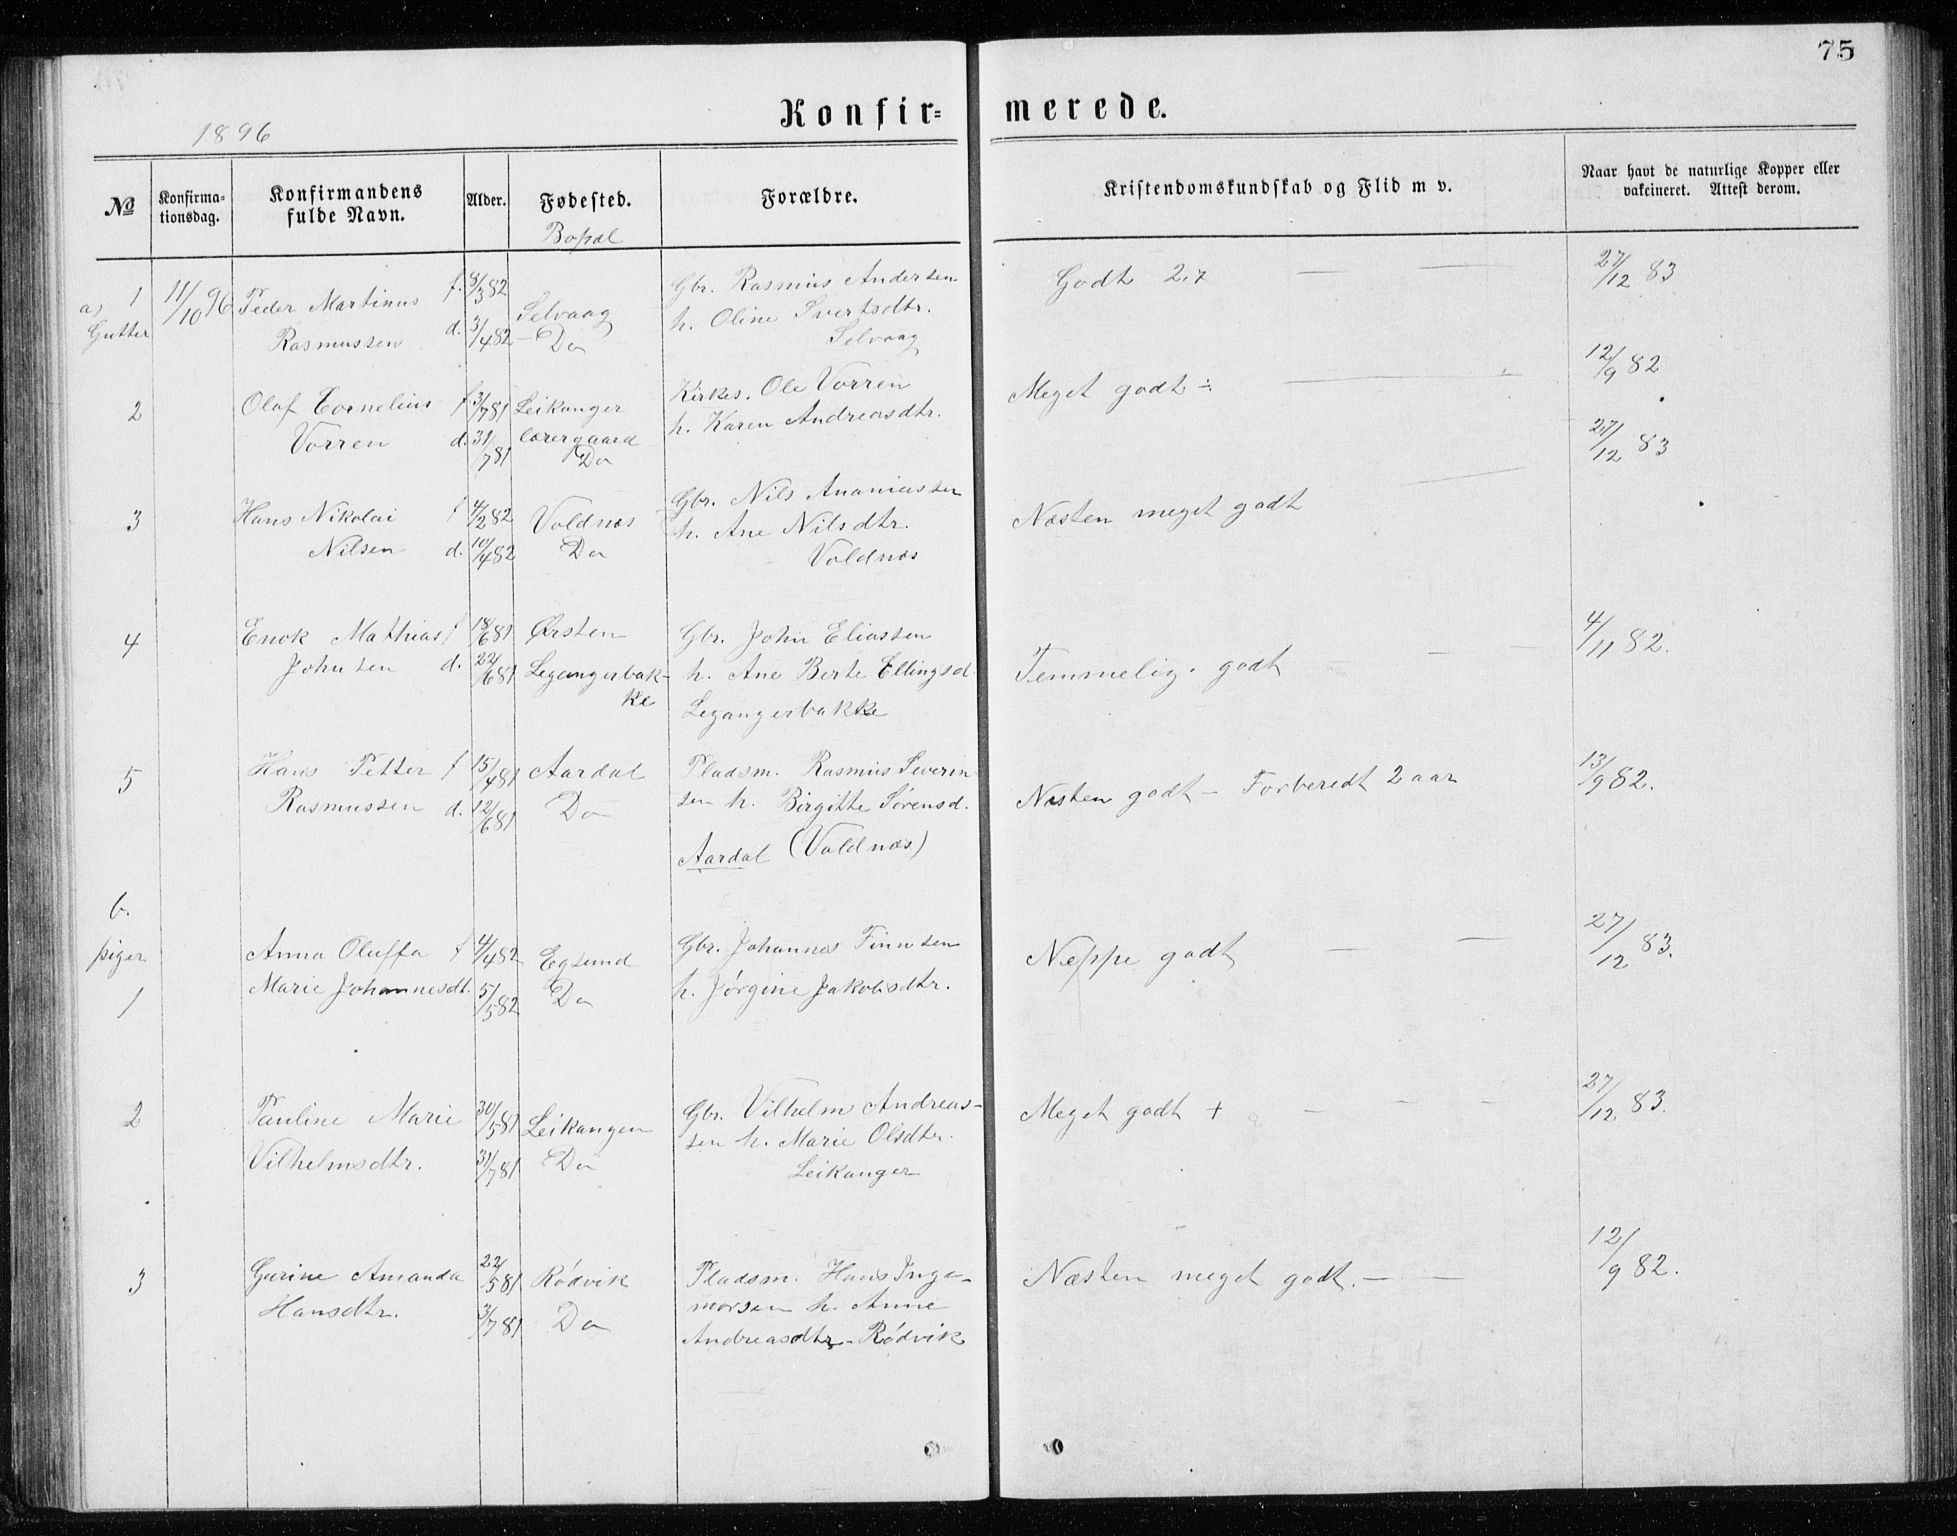 75
Konfir= merede.
1896
No Konfirma=tionsdag. Konfirmandens fulde Navn. Alder. Fødested. Forældre. Kristendomskundskab og Flid m v. Naar havt de naturlige Kopper eller vakcineret. Attest derom.
Bopæl
a) Gutter
1 11/10 96 Peder Martinus f. 8/3 82 Selvaag Gbr. Rasmus Andersen Godt 2,7 — — 27/12 83
Rasmussen d. 3/4 82 Do h. Oline Sivertsdtr.
Selvaag
2 Olaf Cornelius f 3/7 81 Leikanger Kirkes. Ole Vorren Meget godt ÷ 12/9 82
Vorren d. 31/7 81 lærergaard h. Karen Andreasdtr.
Do
3 Hans Nikolai f 4/2 82 Voldnes Gbr. Nils Ananiassen Næsten meget godt — 27/12 83
Nilsen d. 10/4 82 Do h. Ane Nilsdtr.
Voldnæs
4 Enok Mathias f 18/6 81 Ørsten Gbr. John Eliassen Temmelig godt — — 4/11 82.
Johnsen d. 22/6 81 Legangerbak- h. Ane Berte Ellingsd
ke Legangerbakke
5 Hans Petter f 15/4 81 Aardal Pladsm. Rasmus Severin Næsten godt – Forberedt 2 aar 13/9 82.
Rasmussen d. 12/6 81 Do sen h. Birgitte Sørensd.
Aardal (Voldnæs)
b.
piger
1 Anna Oluffa f 4/4 82 Egsund Gbr. Johannes Finnsen Neppe godt — — 27/12 83.
Marie Johannesdt. 5/5 82 Do h. Jørgine Jakobsdtr.
2 Pauline Marie 30/5 81 Leikanger Gbr. Vilhelm Andreas- Meget godt + — — — 27/12 83.
Vilhelmsdtr. 31/7 81 Do sen h. Marie Olsdtr.
Leikanger
3 Gurine Amanda 22/5 81 Rødvik Pladsm. Hans Inge- Næsten meget godt. — — 12/9 82.
Hansdtr. 3/7 81 Do morsen h. Anne
Andreasdtr. Rødvik